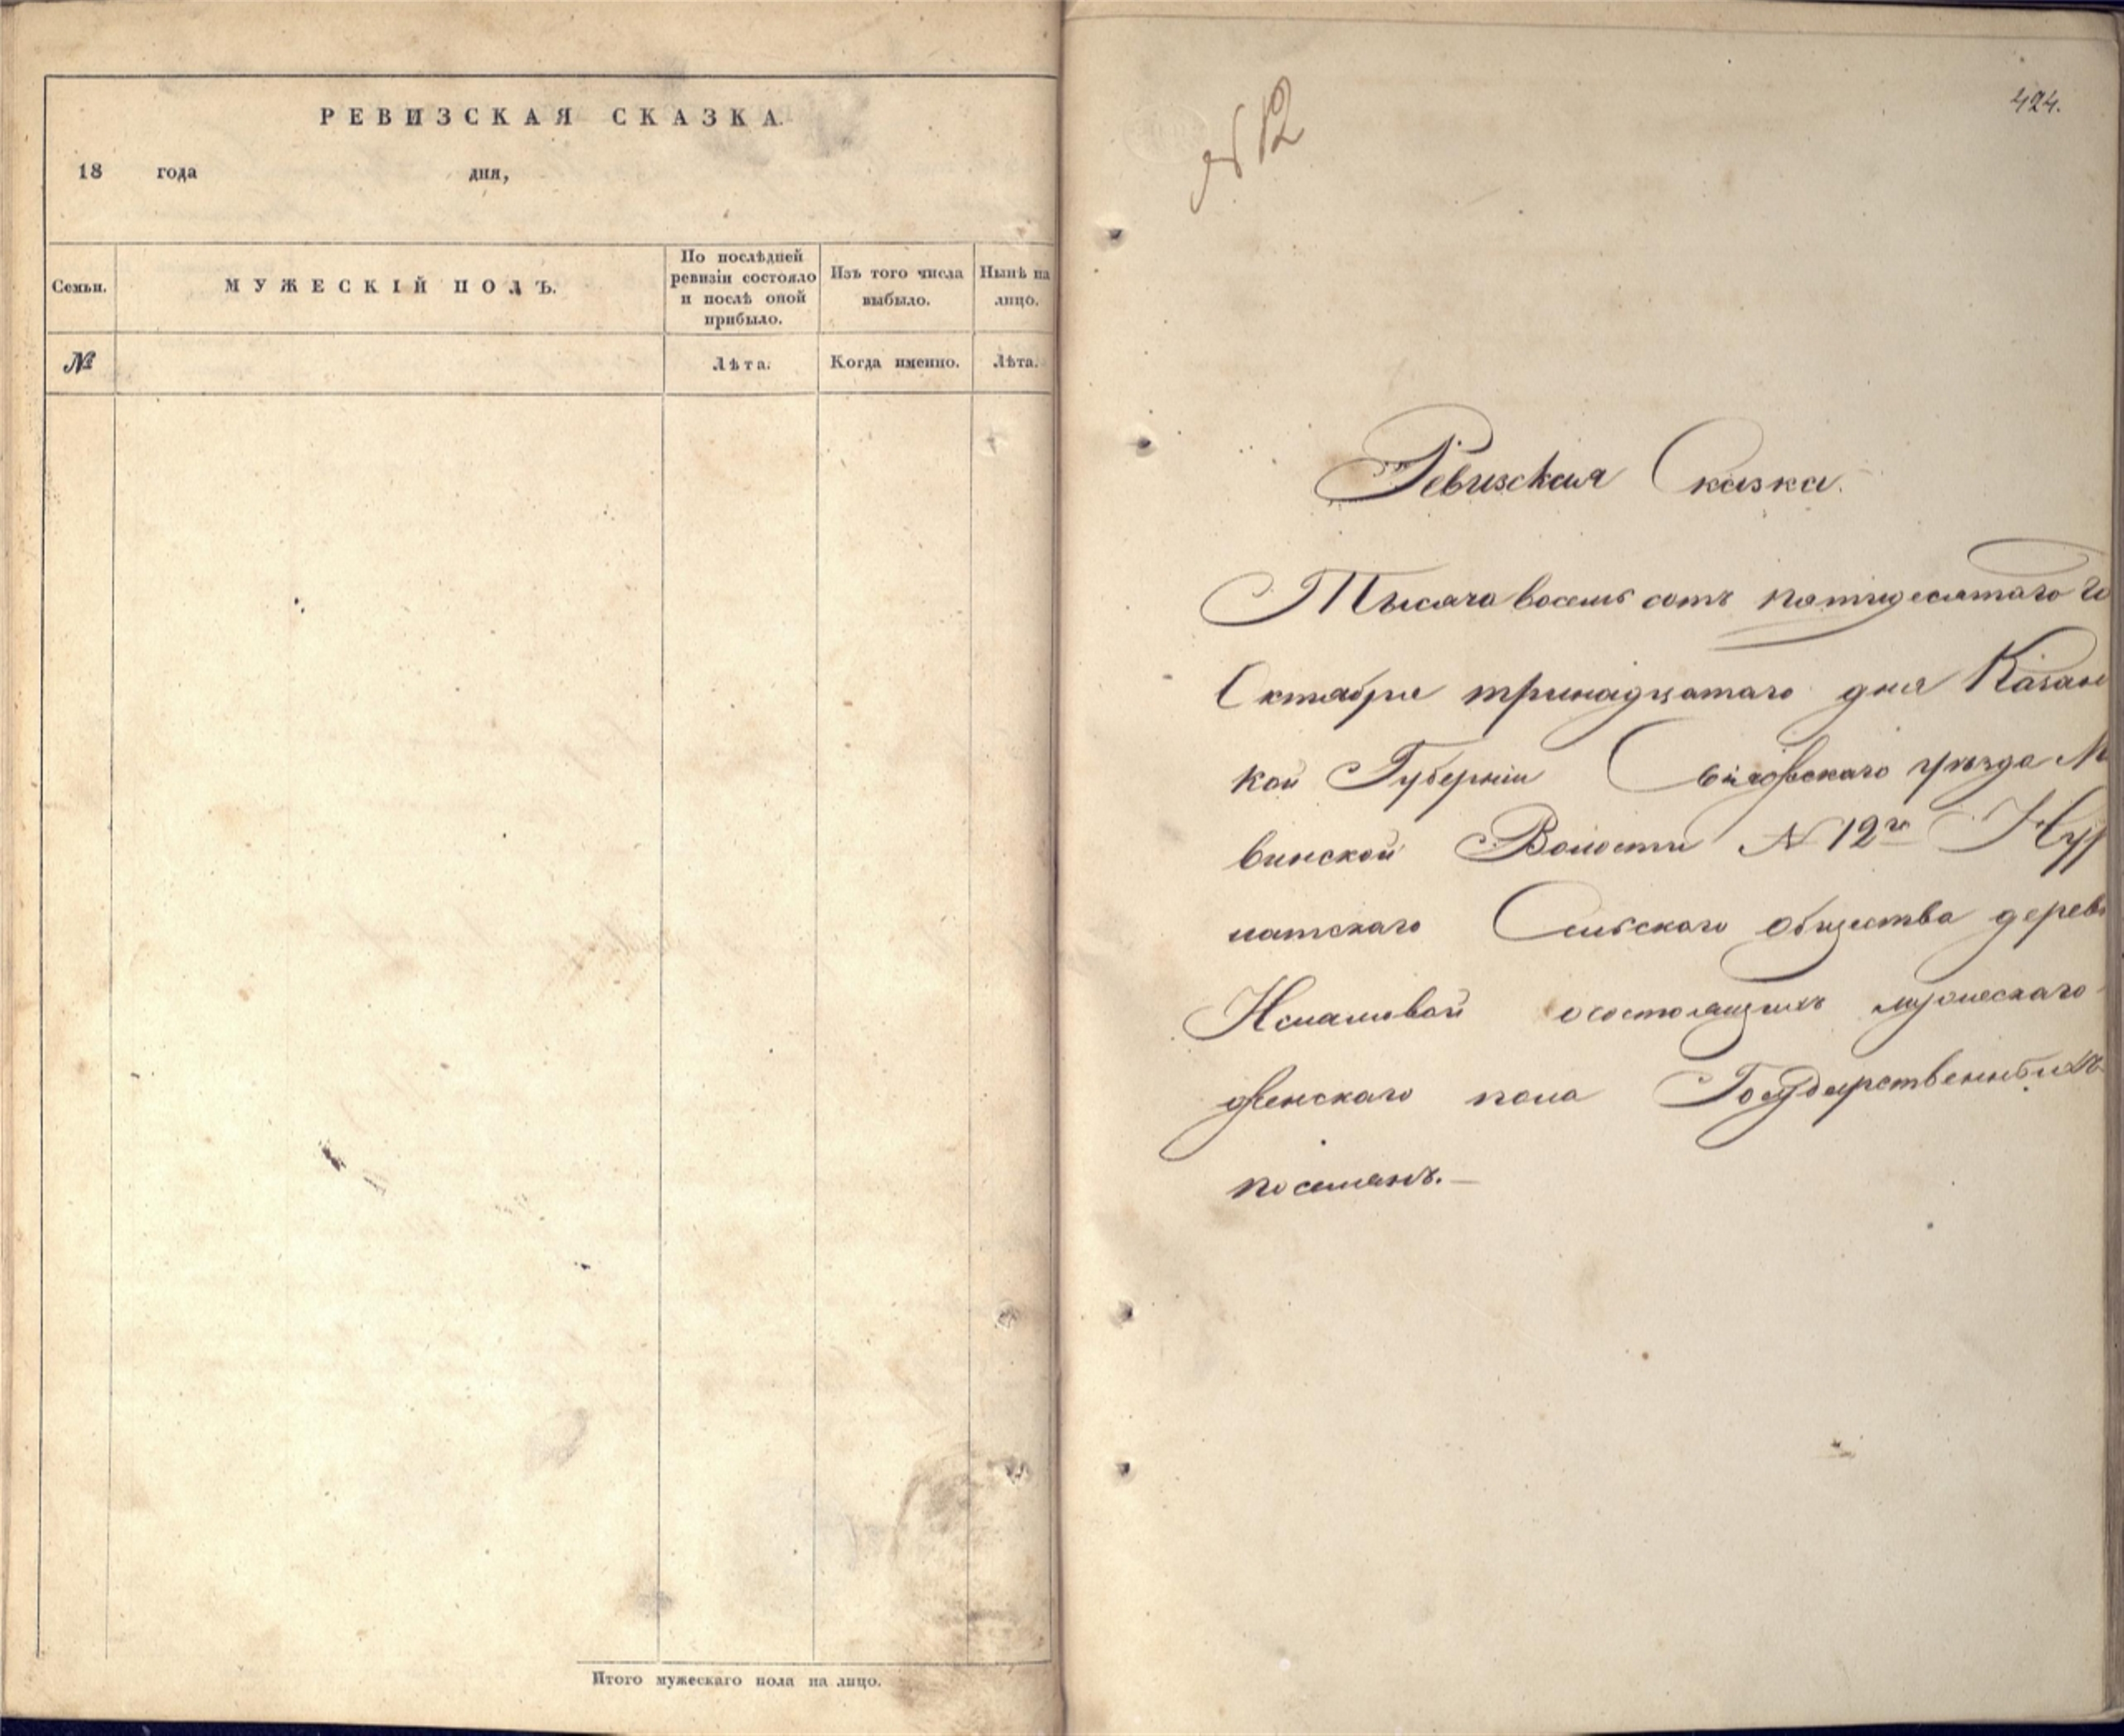 РЕВИЗСКАЯ СКАЗКА.
18 года дня,
Семьи.
МУЖЕСКІЙ ПОЛЪ.
По послѣдней
ревизіи состояло
и послѣ оной
прибыло.
Изъ того числа
выбыло.
Нынѣ на
лицо.
№
Лѣта.
Когда именно.
Лѣта.
Итого мужескаго пола на лицо.
424.
№ 12
Ревизская Сказка.
Тысяча восемь сотъ пятидесятаго го
Октября тринадцатаго дня Казан
кой Губерніи Свіяжскаго уѣзда
винской Волости № 12го Нур
латскаго Сельскаго общества дерев
Исламовой о состоящихъ мужескаго
женскаго пола Государственныхъ
поселянъ.—